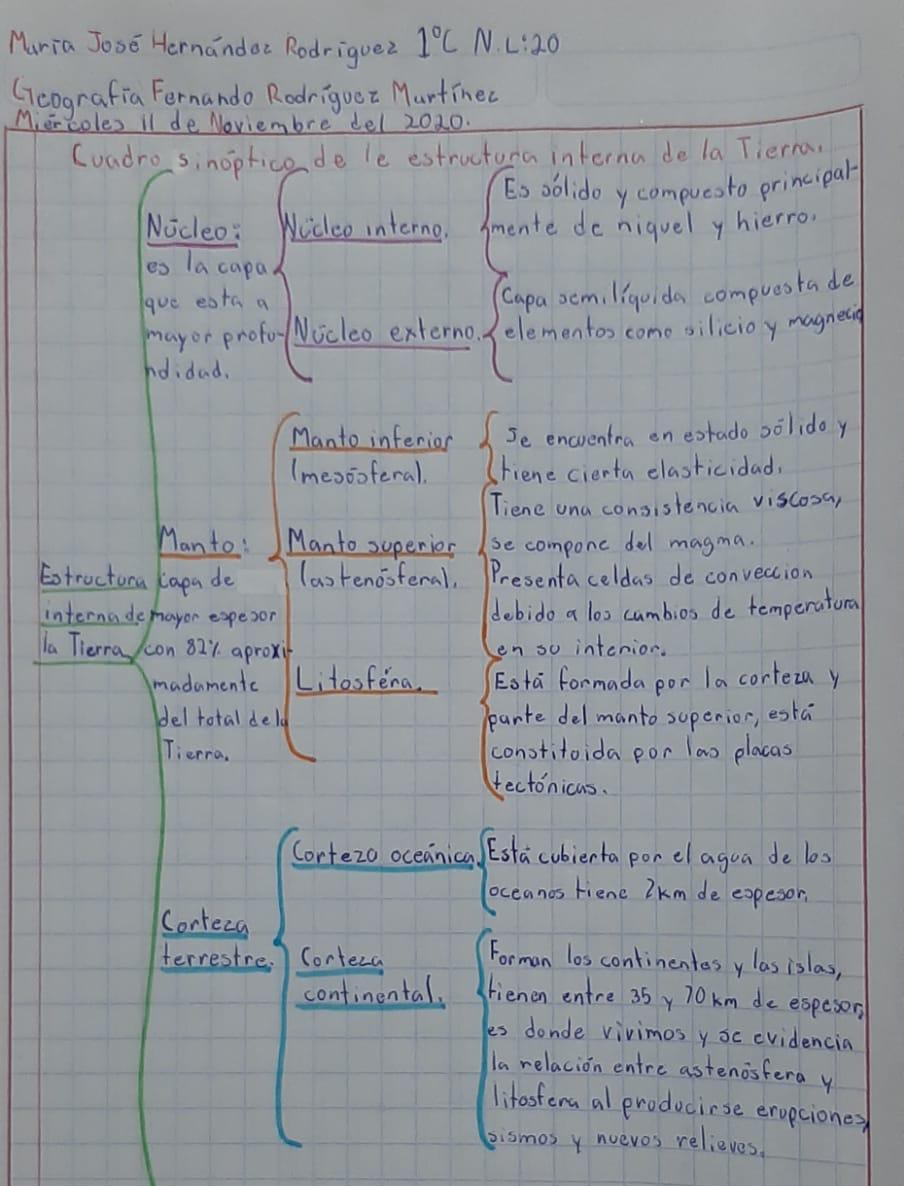 María José Hernández Rodríguez 1°C N.L:20
Geografía Fernando Rodríguez Martínez
Miércoles 11 de Noviembre del 2020.
Cuadro sinóptico de le estructura interna de la Tierra.
Estructura
interna de
la Tierra
Núcleo:
es la capa
que esta a
mayor profu-
ndidad.
Núcleo interno.
Es sólido y compuesto principal-
mente de niquel y hierro.
Núcleo externo.
Capa semilíquida compuesta de
elementos como silicio y magnecio
Manto:
capa de
mayor espesor
con 82% aproxi-
madamente
del total de la
Tierra.
Manto inferior
(mesósfera).
Se encuentra en estado sólido y
tiene cierta elasticidad.
Manto superior
(astenósfera).
Tiene una consistencia viscosa,
se compone del magma.
Presenta celdas de conveccion
debido a los cambios de temperatura
en su interior.
Litosféra.
Está formada por la corteza y
parte del manto superior, está
constituida por las placas
tectónicas.
Corteza
terrestre.
Corteza oceánica.
Está cubierta por el agua de los
oceanos tiene 7km de espesor.
Corteza
continental.
Forman los continentes y las islas,
tienen entre 35 y 70 km de espesor,
es donde vivimos y se evidencia
la relación entre astenósfera y
litosfera al producirse erupciones,
sismos y nuevos relieves.